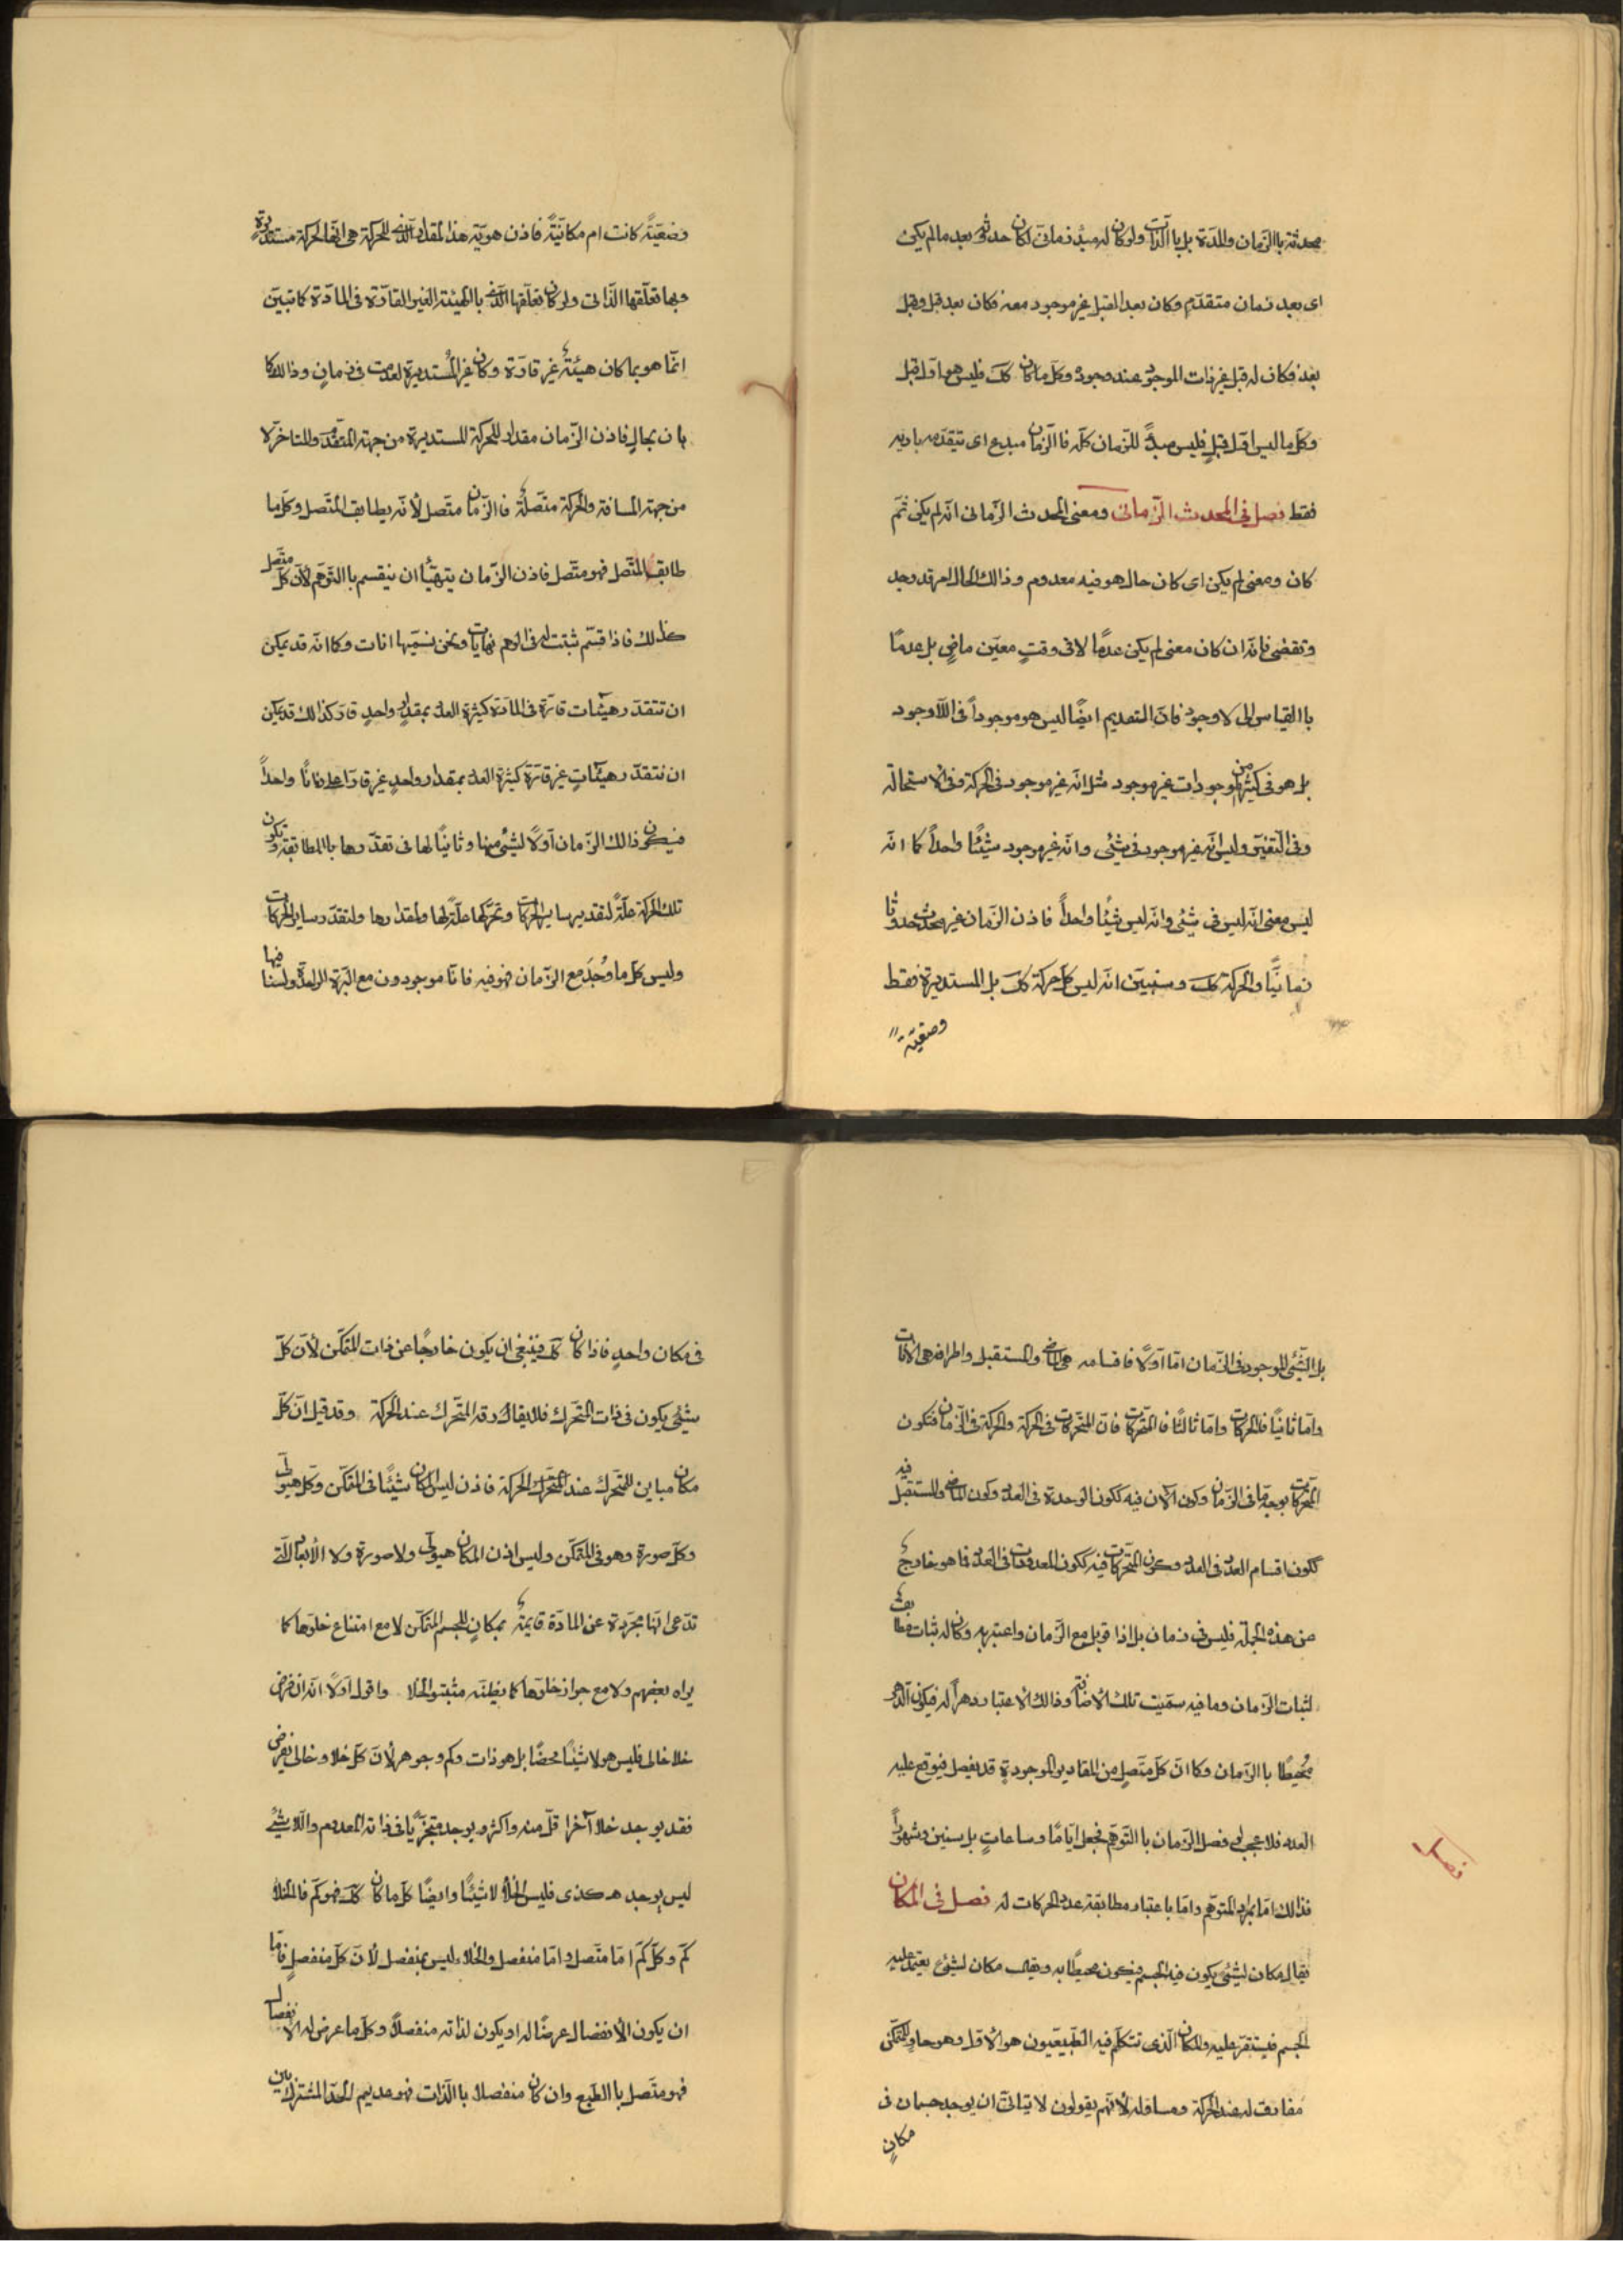 محدثة باالزمان والمدة بل باالذات ولو كان له مبدء زمانى لكان حدثه بعد مالم يكن
اى بعد زمان متقدم وكان بعد القبل غير موجود معه فكان بعد قبل وقبل
بعد فكان له قبل غير ذات الموجود عند وجوده وكل ما كان كك فليس هو اول قبل
وكل ما ليس اول قبل فليس مبدءً للزمان كله فاالزمان مبدع اى يتقدمه باريه
فقط فصل فى المحدث الزمانى ومعنى المحدث الزمانى انه لم يكن ثم
كان ومعنى لم يكن اى كان حال هو فيه معدوم وذالك الحال امر قد وجد
وتقضى فانه ان كان معنى لم يكن عدمًا لا فى وقتٍ معين ماضٍ بل عدمًا
باالقياس الى لا وجود فان القديم ايضًا ليس هو موجوداً فى اللاوجود
بل هو فى كثير من الموجودات غير موجود مثل انه غير موجود فى الحركة وفى الاستحالة
وفى التغير وليس انه غير موجود فى شئى وانه غير موجود شيئًا واحداً كما انه
ليس معنى انه ليس فى شئى وانه ليس شيئًا واحداً فاذن الزمان غير محدث حدوثا
زمانيًا والحركة كك وسنبين انه ليس كل حركة كك بل المستديرة فقط
وضعيّة
وضعيّةً كانت ام مكانيّةً فاذن هوية هذا المقدار الذى للحركة هى انها لحركة مستديرةٍ
وبها تعلقها الذاتى ولو كان تعلقها الذى باالهيئة الغير القارّة فى المادّة كما تبين
انما هو بما كان هيئةً غير قارّة وكان غير المستديرة لعدمت فى زمانٍ وذالك كا
بان بحالٍ فاذن الزمان مقدار للحركة المستديرة من جهة المتقدّم والمتاخر لا
من جهة المسافة والحركة متصلة فاالزمان متصل لأنه يطابق المتصل وكل ما
طابق المتصل فهو متصل فاذن الزمان يتهيّأ ان ينقسم باالتوهم لأن كل متصل
كذلك فاذا قسم ثبتت له فى الوهم نهايات ونحن نسميها انات وكما انه قد يمكن
ان تتقدر هيئات قارّة فى المادّة كثيرة العدد بمقدارٍ واحدٍ قار كذالك قد يمكن
ان تتقدر هيئاتٍ غير قارّة كثيرة العدد بمقدار واحدٍ غير قار زمانًا واحداً
فيكون ذالك الزمان اولًا لشئى منها وثانيًا لها فى تقدرها باالمطابقة وتكون
تلك الحركة علةً لتقدير ساير الحركات وتحرّكها علة لها ولمقدارها ولتقدر ساير الحركات
وليس كل ما وُجدَ مع الزمان فهو فيه فانا موجودون مع البرّة الواحدة ولسنا فيها
بل الشئى الموجود فى الزمان اما اولًا فاقسامه هى الماضى والمستقبل واطرافه هى الآنات
واما ثانيًا فالحركات واما ثالثًا فالمتحركات فان المتحركات فى الحركة والحركة فى الزمان فتكون
المتحركات بوجه ما فى الزمان وكون الآن فيه ككون الوحدة فى العدد وكون الماضى والمستقبل فيه
ككون اقسام العدد فى العدد وكون المتحركات فيه ككون المعدودات فى العدد فما هو خارج
من هذه الجملة فليس فى زمان بل اذا قوبل مع الزمان واعتبر به وكان له ثبات مطابق
لثبات الزمان وما فيه سميت تلك الأضافة وذالك الأعتبار دهراً له فيكون الدهر
مُحيطًا باالزمان وكما ان كل متصلٍ من المقادير الموجودةِ قد يفصل فيوقع عليه
العدد فلا عجب لو فصل الزمان باالتوهم فجعل ايّامًا وساعاتٍ بل سنين وشهوراً
فصل
فذالك اما بمراد المتوهم واما باعتبار مطابقة عدد الحركات له فصل فى المكان
يقال مكان لشئى يكون فيه الجسم فيكون محيطًا به ويقال مكان لشئى يعتمد عليه
الجسم فيستقر عليه والمكان الذى تتكلم فيه الطبيعيون هو الأول وهو حاوٍ للمتمكن
مفارق له عند الحركة ومساوٍ له لأنهم يقولون لا يتاتى ان يوجد جسمان فى
مكانٍ
فى مكان واحدٍ فاذا كان كك فينبغى ان يكون خارجًا عن ذات المتمكن لأن كل
شئى يكون فى ذات المتحرك فلا يفارقه المتحرك عند الحركة وقد قيل ان كل
مكان مباين للمتحرك عند المتحرك الحركة فاذن ليس المكان شيئًا فى المتمكن وكل هيولى
وكل صورة وهو فى المتمكن وليس اذن المكان هيولى ولا صورة ولا الأبعاد التى
تدّعى انها مجردة عن المادّة قايمة بمكانٍ للجسم المتمكن لا مع امتناع خلوها كا
يراه بعضهم ولا مع جواز خلوها كا يظنه مثبتو الخلا واقول اولًا انه ان فرض
خلا خالى فليس هو لا شيئًا محضًا بل هو ذات وكم وجوهر لأن كل خلا وخالى يفرض
فقد يوجد خلا آخر اقل منه واكثر ويوجد متجزيًا فى ذاته المعدوم واللا شئى
ليس يوجد هكذى فليس الخلأ لا شيئًا وايضًا كل ما كان كك فهو كم فالخلأ
كم وكل كم اما متصل واما منفصل والخلاء ليس بمنفصل لأن كل منفصلٍ فاما
ان يكون الأنفصال عرضًا له او يكون لذاته منفصلًا وكل ما عرض له الأنفصال
فهو متصل باالطبع وان كان منفصلا باالذات فهو عديم للحد المشترك بين